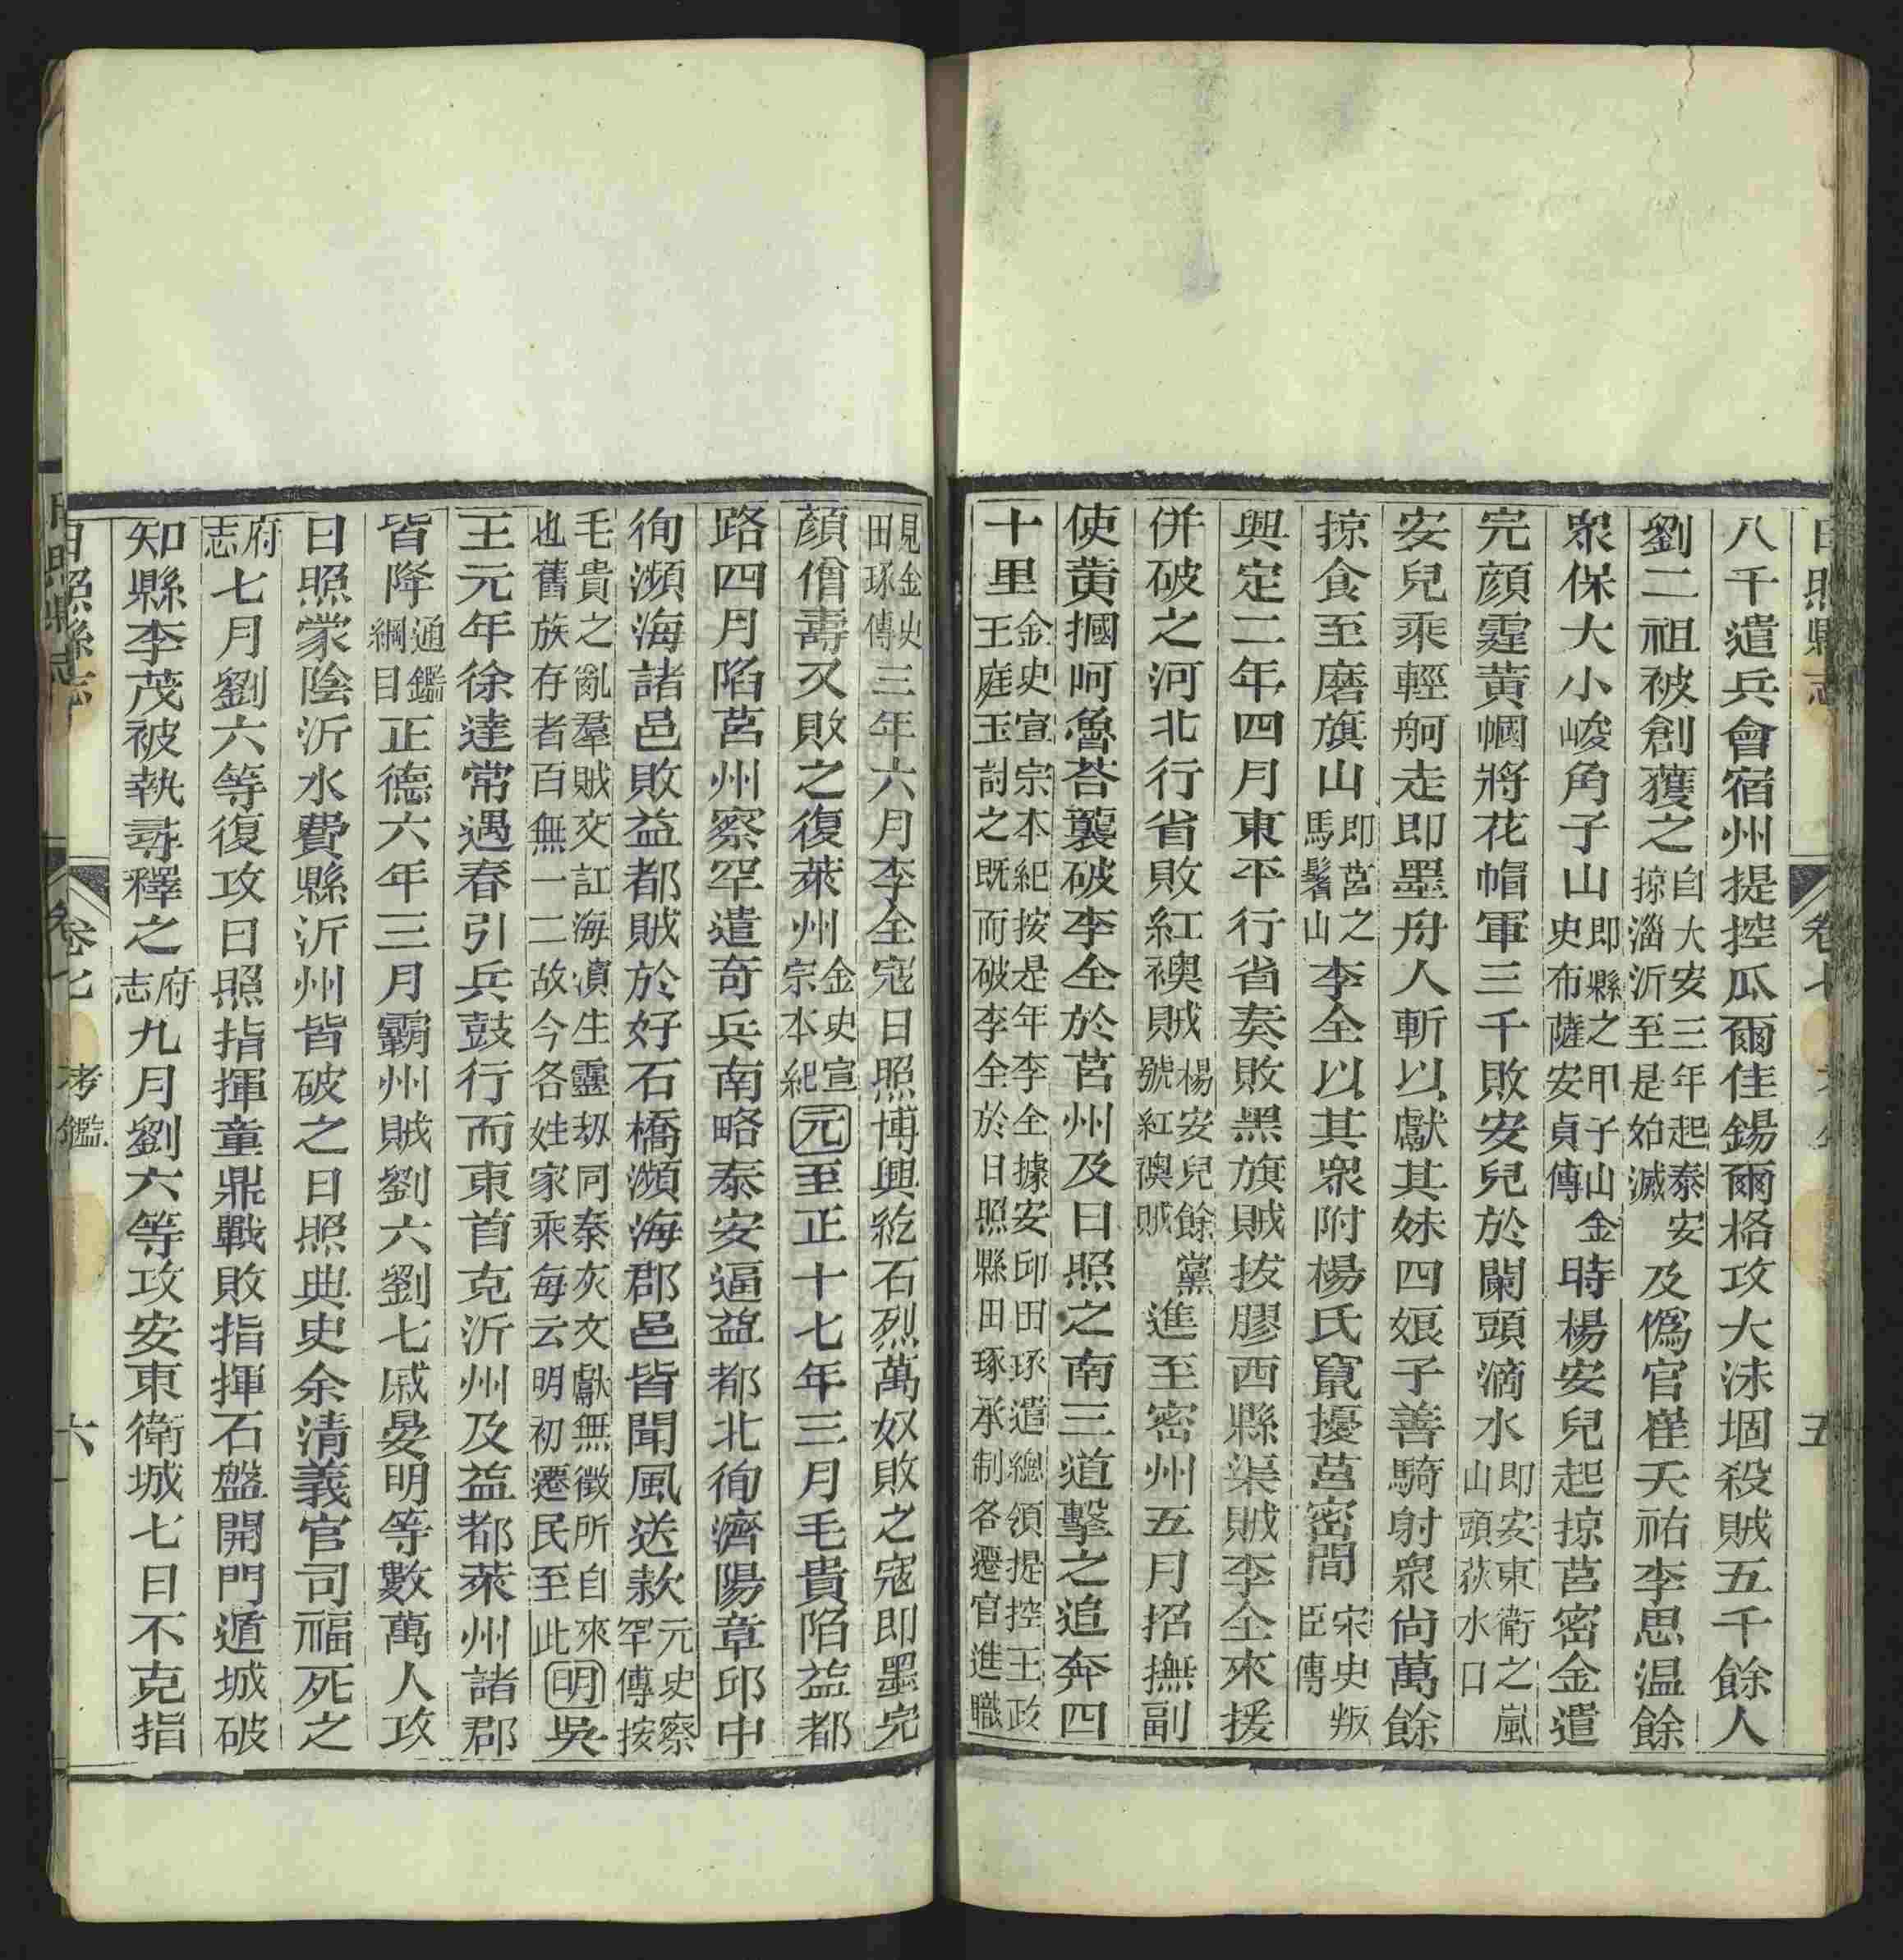 八千遣兵會宿州提控瓜爾佳錫爾格攻大沬堌殺賊五千餘人
劉二祖被創獲之自大安三年起泰安掠淄沂至是始滅及僞官崔天祐李思温餘
衆保大小峻角子山即縣之甲子山金史布薩安貞傳時楊安兒起掠莒密金遣
完顔霆黄幗將花帽軍三千敗安兒於闌頭滴水即安東衛之嵐山頭荻水口
安兒乘輕舸走即墨舟人斬以獻其妹四娘子善騎射衆尙萬餘
掠食至磨旗山即莒之馬鬐山李全以其衆附楊氏竄擾莒密間宋史叛臣傳
興定二年四月東平行省奏敗黑旗賊拔膠西縣渠賊李全來援
併破之河北行省敗紅襖賊楊安兒餘黨號紅襖賊進至密州五月招撫副
使黄摑呵魯荅襲破李全於莒州及日照之南三道擊之追奔四
十里金史宣宗本紀按是年李全據安邱田琢遣總領提控王政王庭玉討之既而破李全於日照縣田琢承制各遷官進職
見金史田琢傳三年六月李全寇日照博興紇石烈萬奴敗之寇即墨完
顔僧壽又敗之復萊州金史宣宗本紀元至正十七年三月毛貴陷益都
路四月陷莒州察罕遣奇兵南略泰安逼益都北徇濟陽章邱中
徇瀕海諸邑敗益都賊於好石橋瀕海郡邑皆聞風送款元史察罕傳按
毛貴之亂羣賊交訌海濵生靈刼同秦灰文獻無徵所自來也舊族存者百無一二故今各姓家乘每云明初遷民至此明吳
王元年徐達常遇春引兵鼓行而東首克沂州及益都萊州諸郡
皆降通鑑綱目正德六年三月霸州賊劉六劉七戚晏明等數萬人攻
日照蒙陰沂水費縣沂州皆破之日照典史余清義官司福死之
府志七月劉六等復攻日照指揮童鼎戰敗指揮石盤開門遁城破
知縣李茂被執尋釋之府志九月劉六等攻安東衛城七日不克指
日照縣志 卷七 考鑑 六